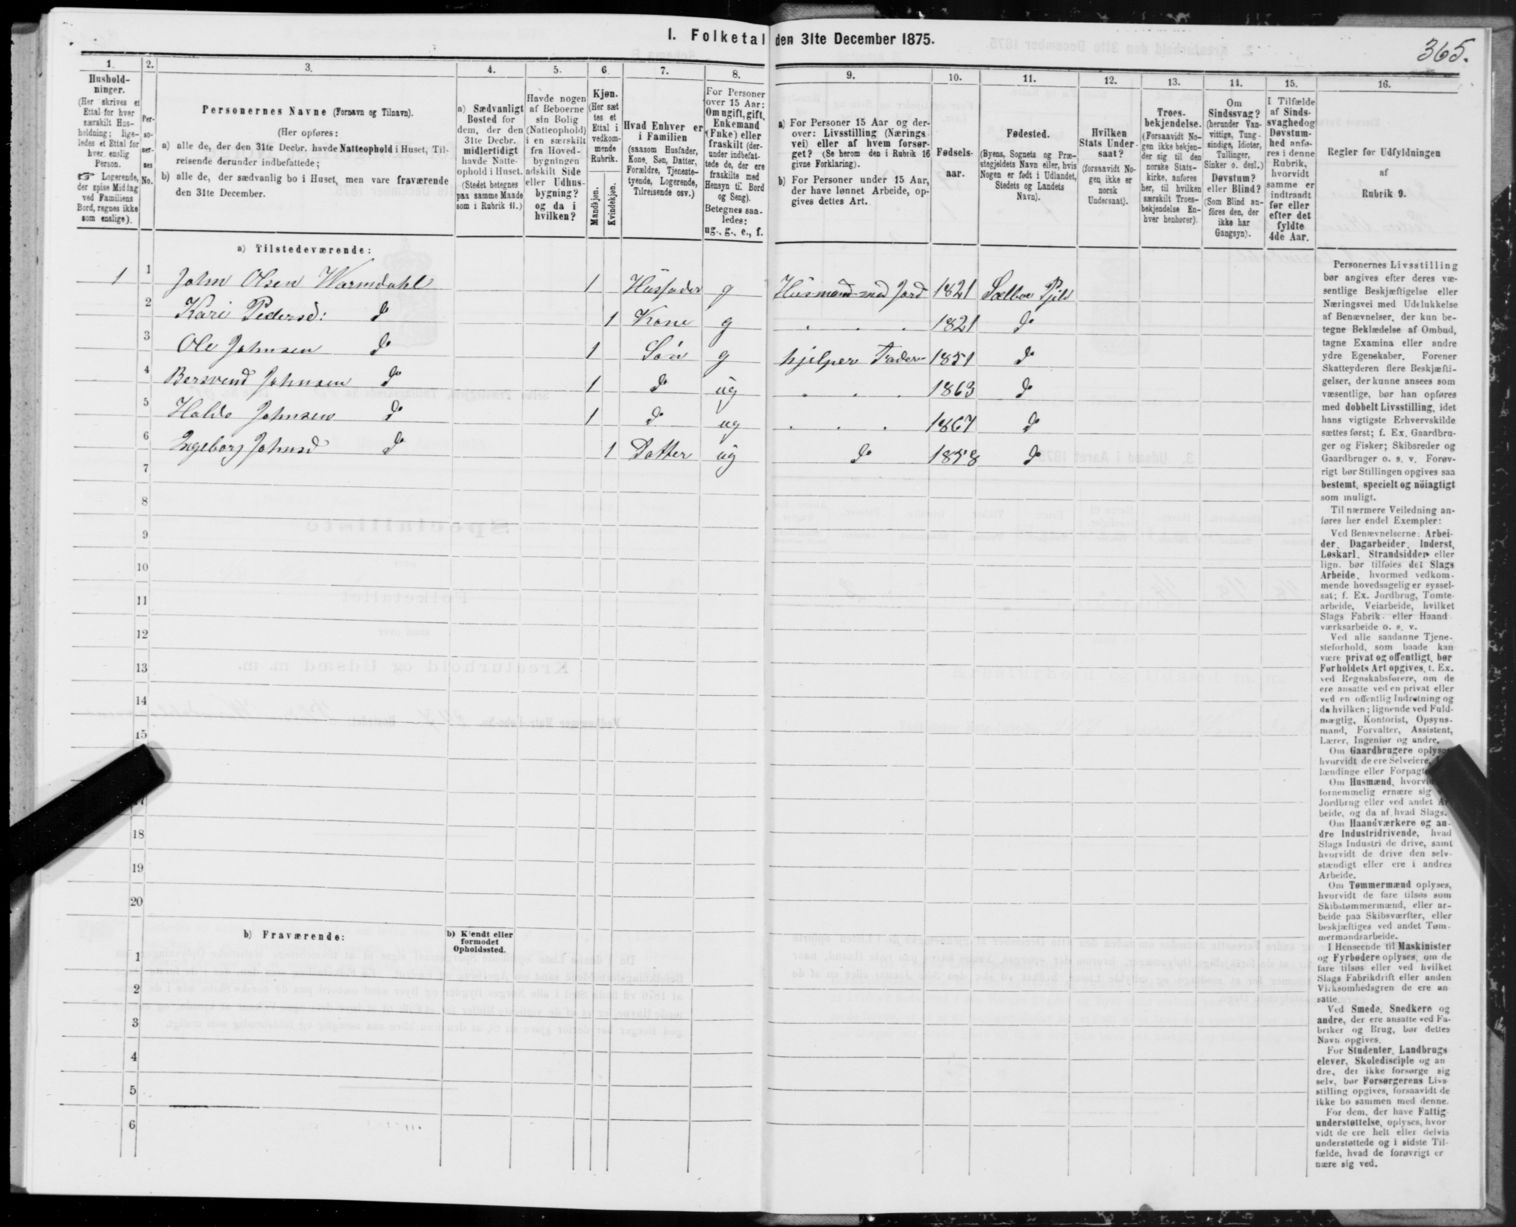 I. Folketal den 31te December 1875.
365.
1. 2. 3. 4. 5. 6. 7. 8. 9. 10. 11. 12. 13. 14. 15. 16.
Hushold-
ninger.
(Her skrives et
Ettal for hver
særskilt Hus-
holdning; lige-
ledes et Ettal for
hver enslig
Person.
☞ Logerende,
der spise Middag
ved Familiens
Bord, regnes ikke
som enslige).
Per-
so-
ner-
nes
No.
Personernes Navne (Fornavn og Tilnavn).
(Her opføres:
a) alle de, der den 31te Decbr. havde Natteophold i Huset, Til-
reisende derunder indbefattede;
b) alle de, der sædvanlig bo i Huset, men vare fraværende
den 31te December.
a) Sædvanligt
Bosted for
dem, der den
31te Decbr.
midlertidigt
havde Natte-
ophold i Huset.
(Stedet betegnes
paa samme Maade
som i Rubrik 11.)
Havde nogen
af Beboerne
sin Bolig
(Natteophold)
i en særskilt
fra Hoved-
bygningen
adskilt Side
eller Udhus-
bygning?
og da i
hvilken?
Kjøn.
(Her sæt
tes et
Ettal i
vedkom-
mende
Rubrik.
Mandkjøn.
Kvindekjøn.
Hvad Enhver er
i Familien
(saasom Husfader,
Kone, Søn, Datter,
Forældre, Tjeneste-
tyende, Logerende,
Tilreisende osv.)
For Personer
over 15 Aar:
Om ugift, gift,
Enkemand
(Enke) eller
fraskilt (der-
under indbefat-
tede de, der ere
fraskilte med
Hensyn til Bord
og Seng).
Betegnes saa-
ledes:
ug., g., e., f.
a) For Personer 15 Aar og der-
over: Livsstilling (Nærings-
vei) eller af hvem forsør-
get? (Se herom den i Rubrik 16
givne Forklaring).
b) For Personer under 15 Aar,
der have lønnet Arbeide, op-
gives dettes Art.
Fødsels-
aar.
Fødested.
(Byens, Sognets og Præ-
stegjeldets Navn eller, hvis
Nogen er født i Udlandet,
Stedets og Landets
Navn).
Hvilken
Stats Under-
saat?
(forsaavidt No-
gen ikke er
norsk
Undersaat).
Troes-
bekjendelse.
(Forsaavidt No-
gen ikke bekjen-
der sig til den
norske Stats-
kirke, anføres
her, til hvilken
særskilt Troes-
bekjendelse En-
hver henhører).
Om
Sindssvag?
(herunder Van-
vittige, Tung-
sindige, Idioter,
Tullinger,
Sinker o. desl.)
Døvstum?
eller Blind?
(Som Blind an-
føres den, der
ikke har
Gangsyn).
I Tilfælde
af Sinds-
svaghed og
Døvstum-
hed anfø-
res i denne
Rubrik,
hvorvidt
samme er
indtraadt
før eller
efter det
fyldte
4de Aar.
Regler for Udfyldningen
af
Rubrik 9.
a) Tilstedeværende:
1 1 John Olsen Warmdahl 1 Husfader g Husmand med Jord 1821 Sælboe Pjeld
2 Kari Pedersd: do 1 Kone g 1821 do
3 Ole Johnsen do 1 Søn g hjelper Faderen 1851 do
4 Bersvend Johnsen do 1 do ug 1863 do
5 Haldo Johnsen do 1 do ug 1867 do
6 Ingeborg Johnsd do 1 Datter ug do 1858 do
7
8
9
10
11
12
13
14
15
18
19
20
b) Fraværende:
b) Kjendt eller
formodet
Opholdssted.
1
2
3
4
5
6
Personernes Livsstilling
bør angives efter deres væ-
sentlige Beskjæftigelse eller
Næringsvei med Udelukkelse
af Benævnelser, der kun be-
tegne Beklædelse af Ombud,
tagne Examina eller andre
ydre Egenskaber. Forener
Skatteyderen flere Beskjæfti-
gelser, der kunne ansees som
væsentlige, bør han opføres
med dobbelt Livsstilling, idet
hans vigtigste Erhvervskilde
sættes først; f. Ex. Gaardbru-
ger og Fisker; Skibsreder og
Gaardbruger o. s. v. Forøv-
rigt bør Stillingen opgives saa
bestemt, specielt og nöiagtigt
som muligt.
Til nærmere Veiledning an-
føres her endel Exempler:
Ved Benævnelserne: Arbei-
der, Dagarbeider, Inderst,
Løskarl, Strandsidder eller
lign. bør tilføies det Slags
Arbeide, hvormed vedkom-
mende hovedsagelig er syssel-
sat; f. Ex. Jordbrug, Tomte-
arbeide, Veiarbeide, hvilket
Slags Fabrik- eller Haand-
værksarbeide o. s. v.
Ved alle saadanne Tjene-
steforhold, som baade kan
være privat og offentligt, bør
Forholdets Art opgives, t. Ex.
ved Regnskabsførere, om de
ere ansatte ved en privat eller
ved en offentlig Indretning og
da hvilken; lignende ved Fuld-
mægtig, Kontorist, Opsyns-
mand, Forvalter, Assistent,
Lærer, Ingeniør og andre.
Om Gaardbrugere oplyses
hvorvidt de ere Selveiere,
lændinge eller Forpagt
Om Husmænd, hvorvi
fornemmelig ernære sig
Jordbrug eller ved andet Ar
beide, og da af hvad Slags.
Om Haandværkere og an-
dre Industridrivende, hvad
Slags Industri de drive, samt
hvorvidt de drive den selv-
stændigt eller ere i andres
Arbeide.
Om Tømmermænd oplyses,
hvorvidt de fare tilsøs som
Skibstømmermænd, eller ar-
beide paa Skibsværfter, eller
beskjæftiges ved andet Tøm-
mermandsarbeide.
I Henseende til Maskinister
og Fyrbødere oplyses, om de
fare tilsøs eller ved hvilket
Slags Fabrikdrift eller anden
Virksomhedsgren de ere an-
satte.
Ved Smede, Snedkere og
andre, der ere ansatte ved Fa-
briker og Brug, bør dettes
Navn opgives.
For Studenter, Landbrugs
elever, Skoledisciple og an
dre, der ikke forsørge sig
selv, bør Forsørgerens Livs-
stilling opgives, forsaavidt de
ikke bo sammen med denne.
For dem, der have Fattig-
understøttelse, oplyses, hvor
vidt de ere helt eller delvis
understøttede og i sidste Til-
fælde, hvad de forøvrigt er
nære sig ved.